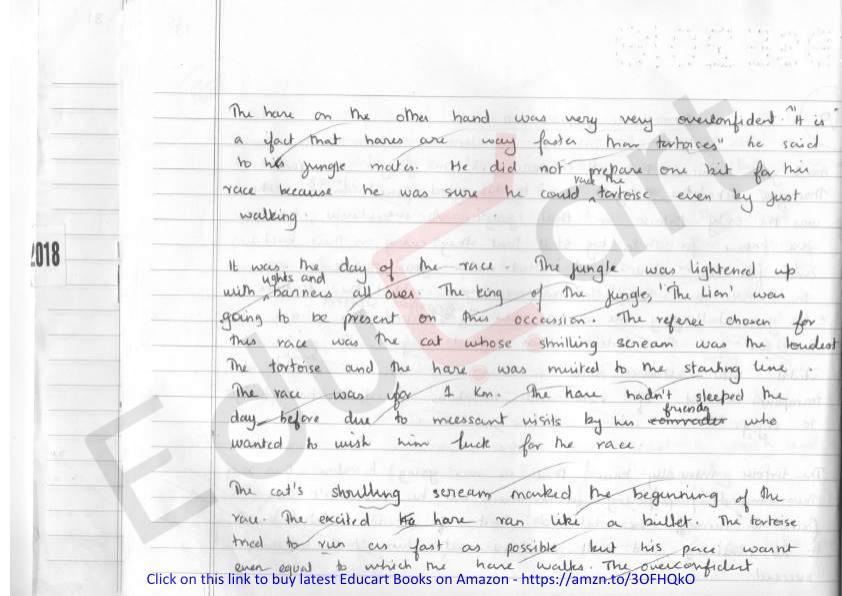 The hare on the other hand was very very overconfident. "It is
a fact that hares are way faster than tortoises" he said
to his jungle mates. He did not prepare one bit for this
race because he was sure he could race the tortoise even by just
walking.
2018
It was the day of the race. The jungle was lightened up
with lights and banners all over. The king of the jungle, 'The Lion' was
going to be present on this occassion. The referee chosen for
this race was the cat whose shrilling scream was the loudest
The tortoise and the hare was invited to the starting line.
The race was for 1 Km. The hare hadn't sleeped the
day before due to incessant visits by his friends who
wanted to wish him luck for the race.
The cat's shrilling scream marked the beginning of the
race. The excited hare ran like a bullet. The tortoise
tried to run as fast as possible but his pace wasnt
even equal to which the hare walks. The overconfident
Educart
Click on this link to buy latest Educart Books on Amazon - https://amzn.to/3OFHQkO